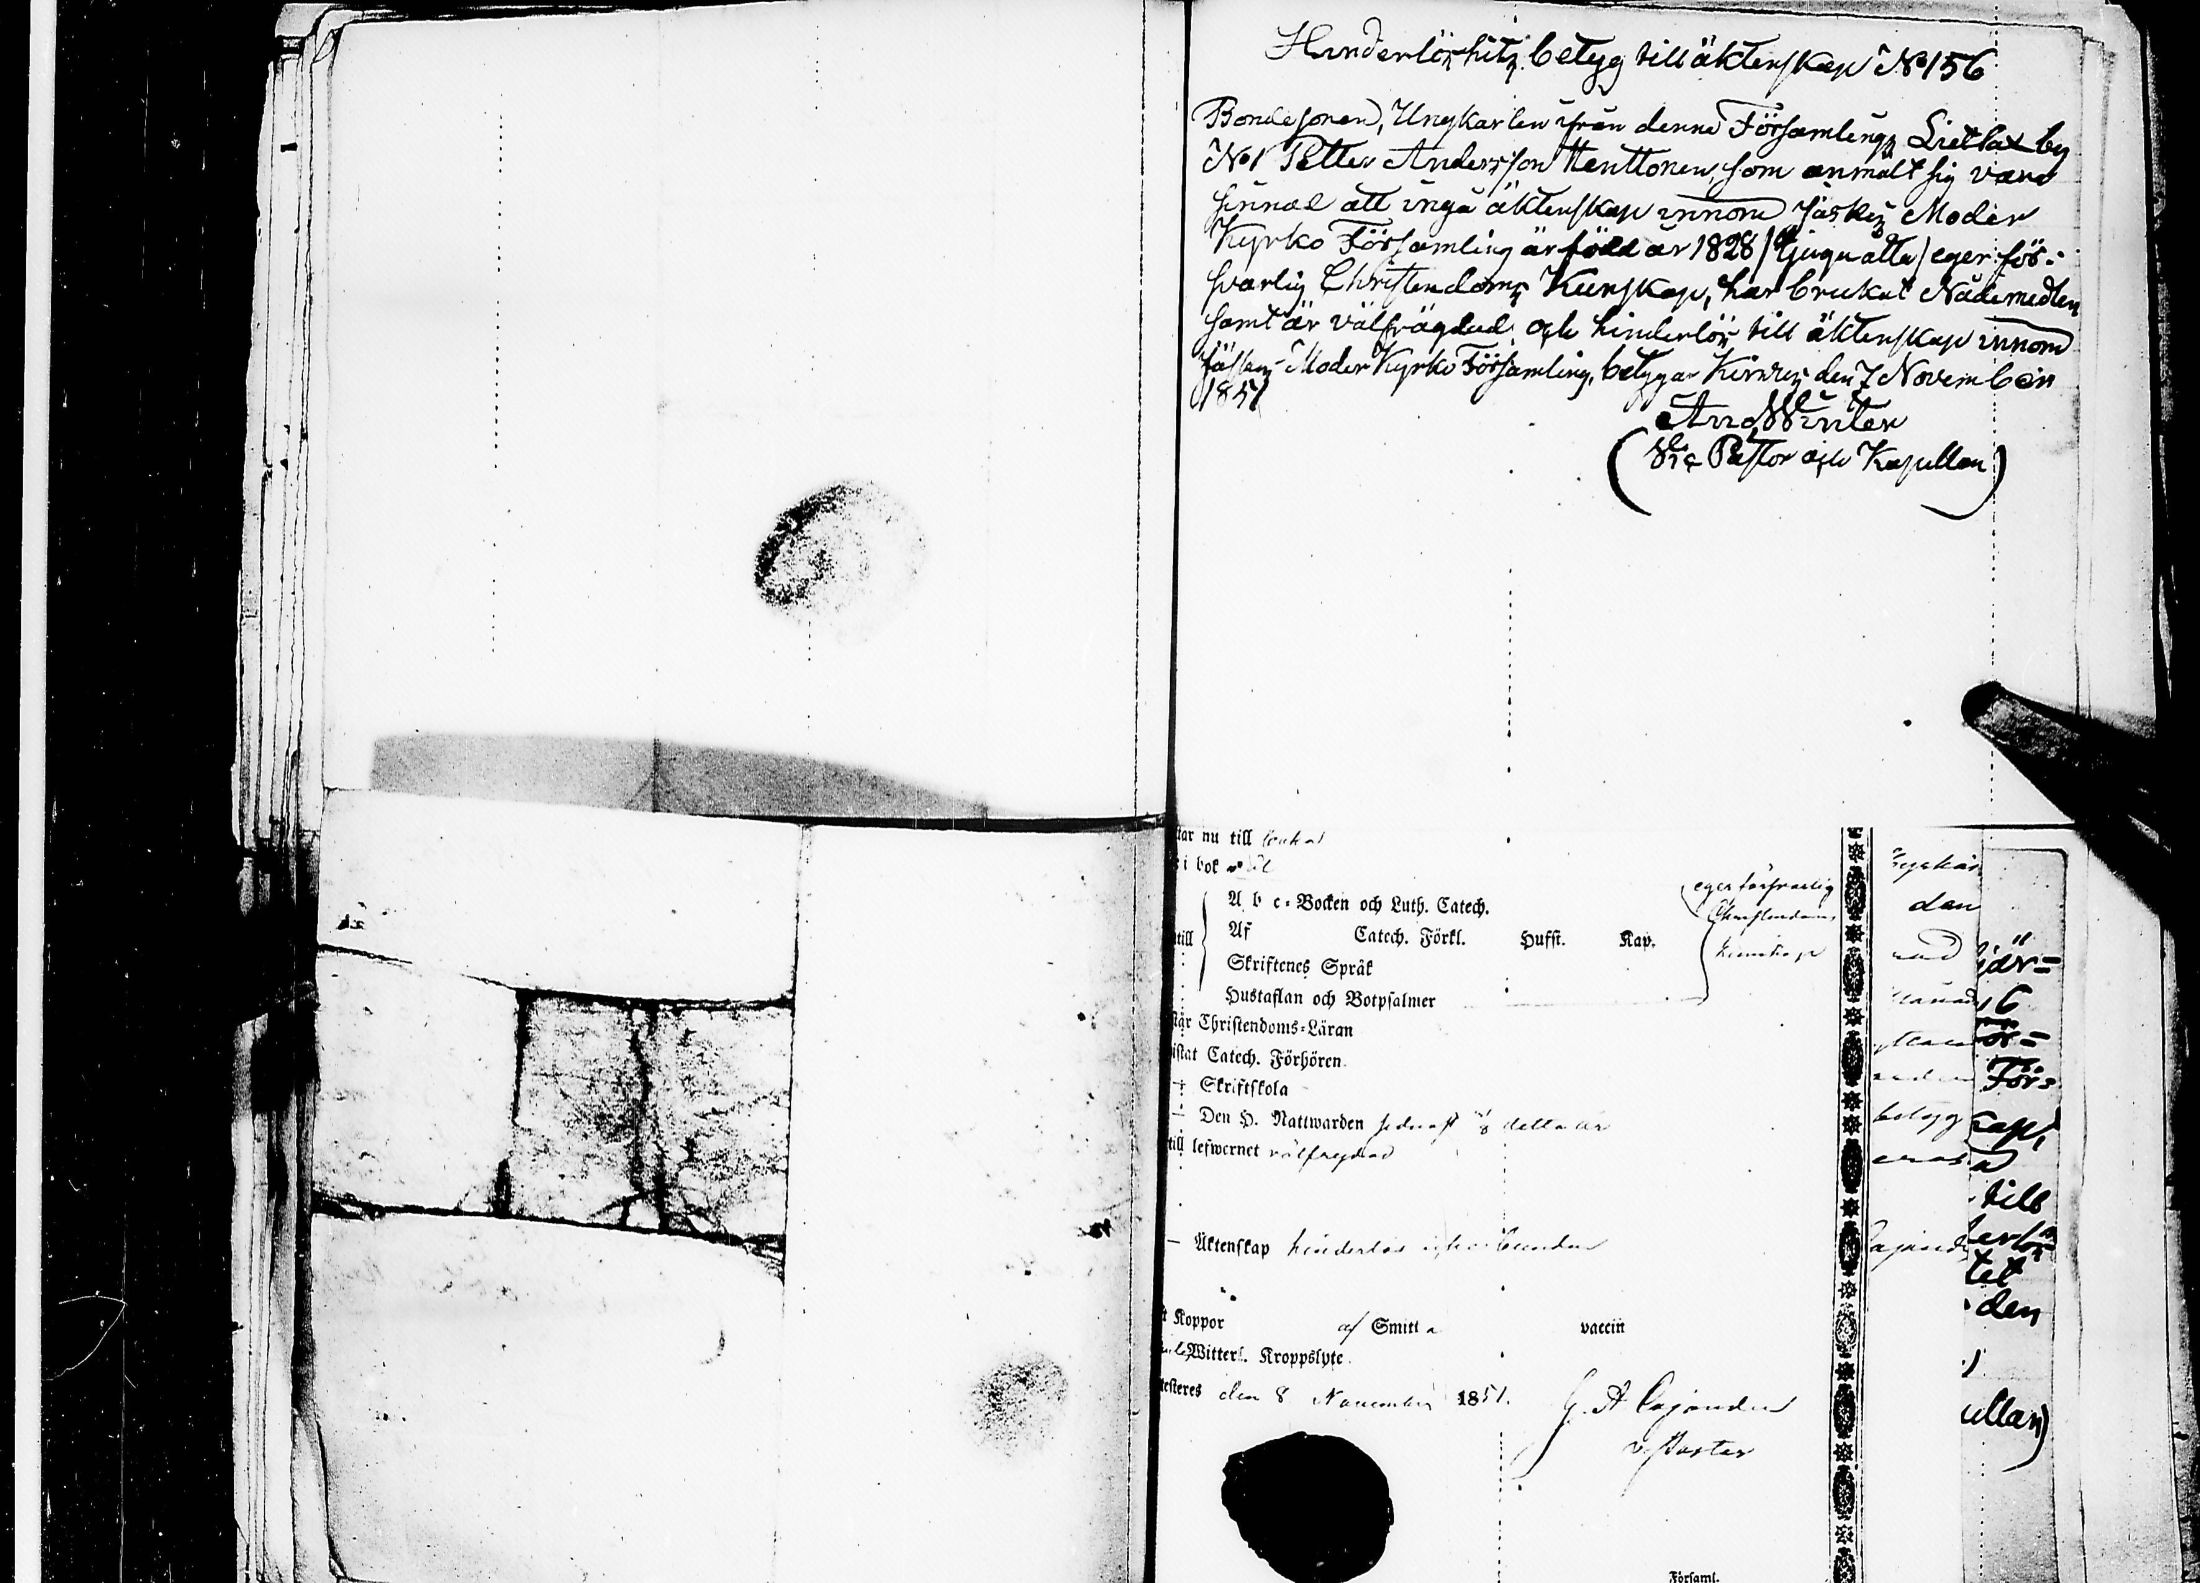 Hinderlöshets betyg till äktenskap No 156
Bondesonen, Ungkarlen ifrån denne Församlings Lietlax by
No 1 Petter Andersson Henttonen, som anmält sig vara
sinnad att ingå äktenskap innom Jäskis Moder
Kyrko Församling är född år 1828 / tjuguåtta / eger för-
svarlig Christendoms Kunskap, har brukat Nådemedlen
samt är välfrägdad och hinderlös till äktenskap innom
Moder Kyrko Församling, betygar Kirvus den 7 November
1851
And Winter
(Vic Pastor och Kapellan)
tar nu till
i bok
A b c-Bocken och Luth. Catech.
Af Catech. Förkl. Hufst. Kap.
eger försvarlig
Christendoms
kunskap
till
Skriftenes Språk
Hustaflan och Botpsalmer
står Christendoms-Läran
istat Catech. Förhören
— Skriftskola
— Den H. Nattwarden sednast detta år
till lefwernet välfrejdad
— Äktenskap hinderlös
t Koppor af Smitta vaccin
Witterl. Kroppslyte
testeres den 8 November 1851.
G. A. Cajander
v. Pastor
Församl.
den
betyg
För=
till
tet
den
ullan)